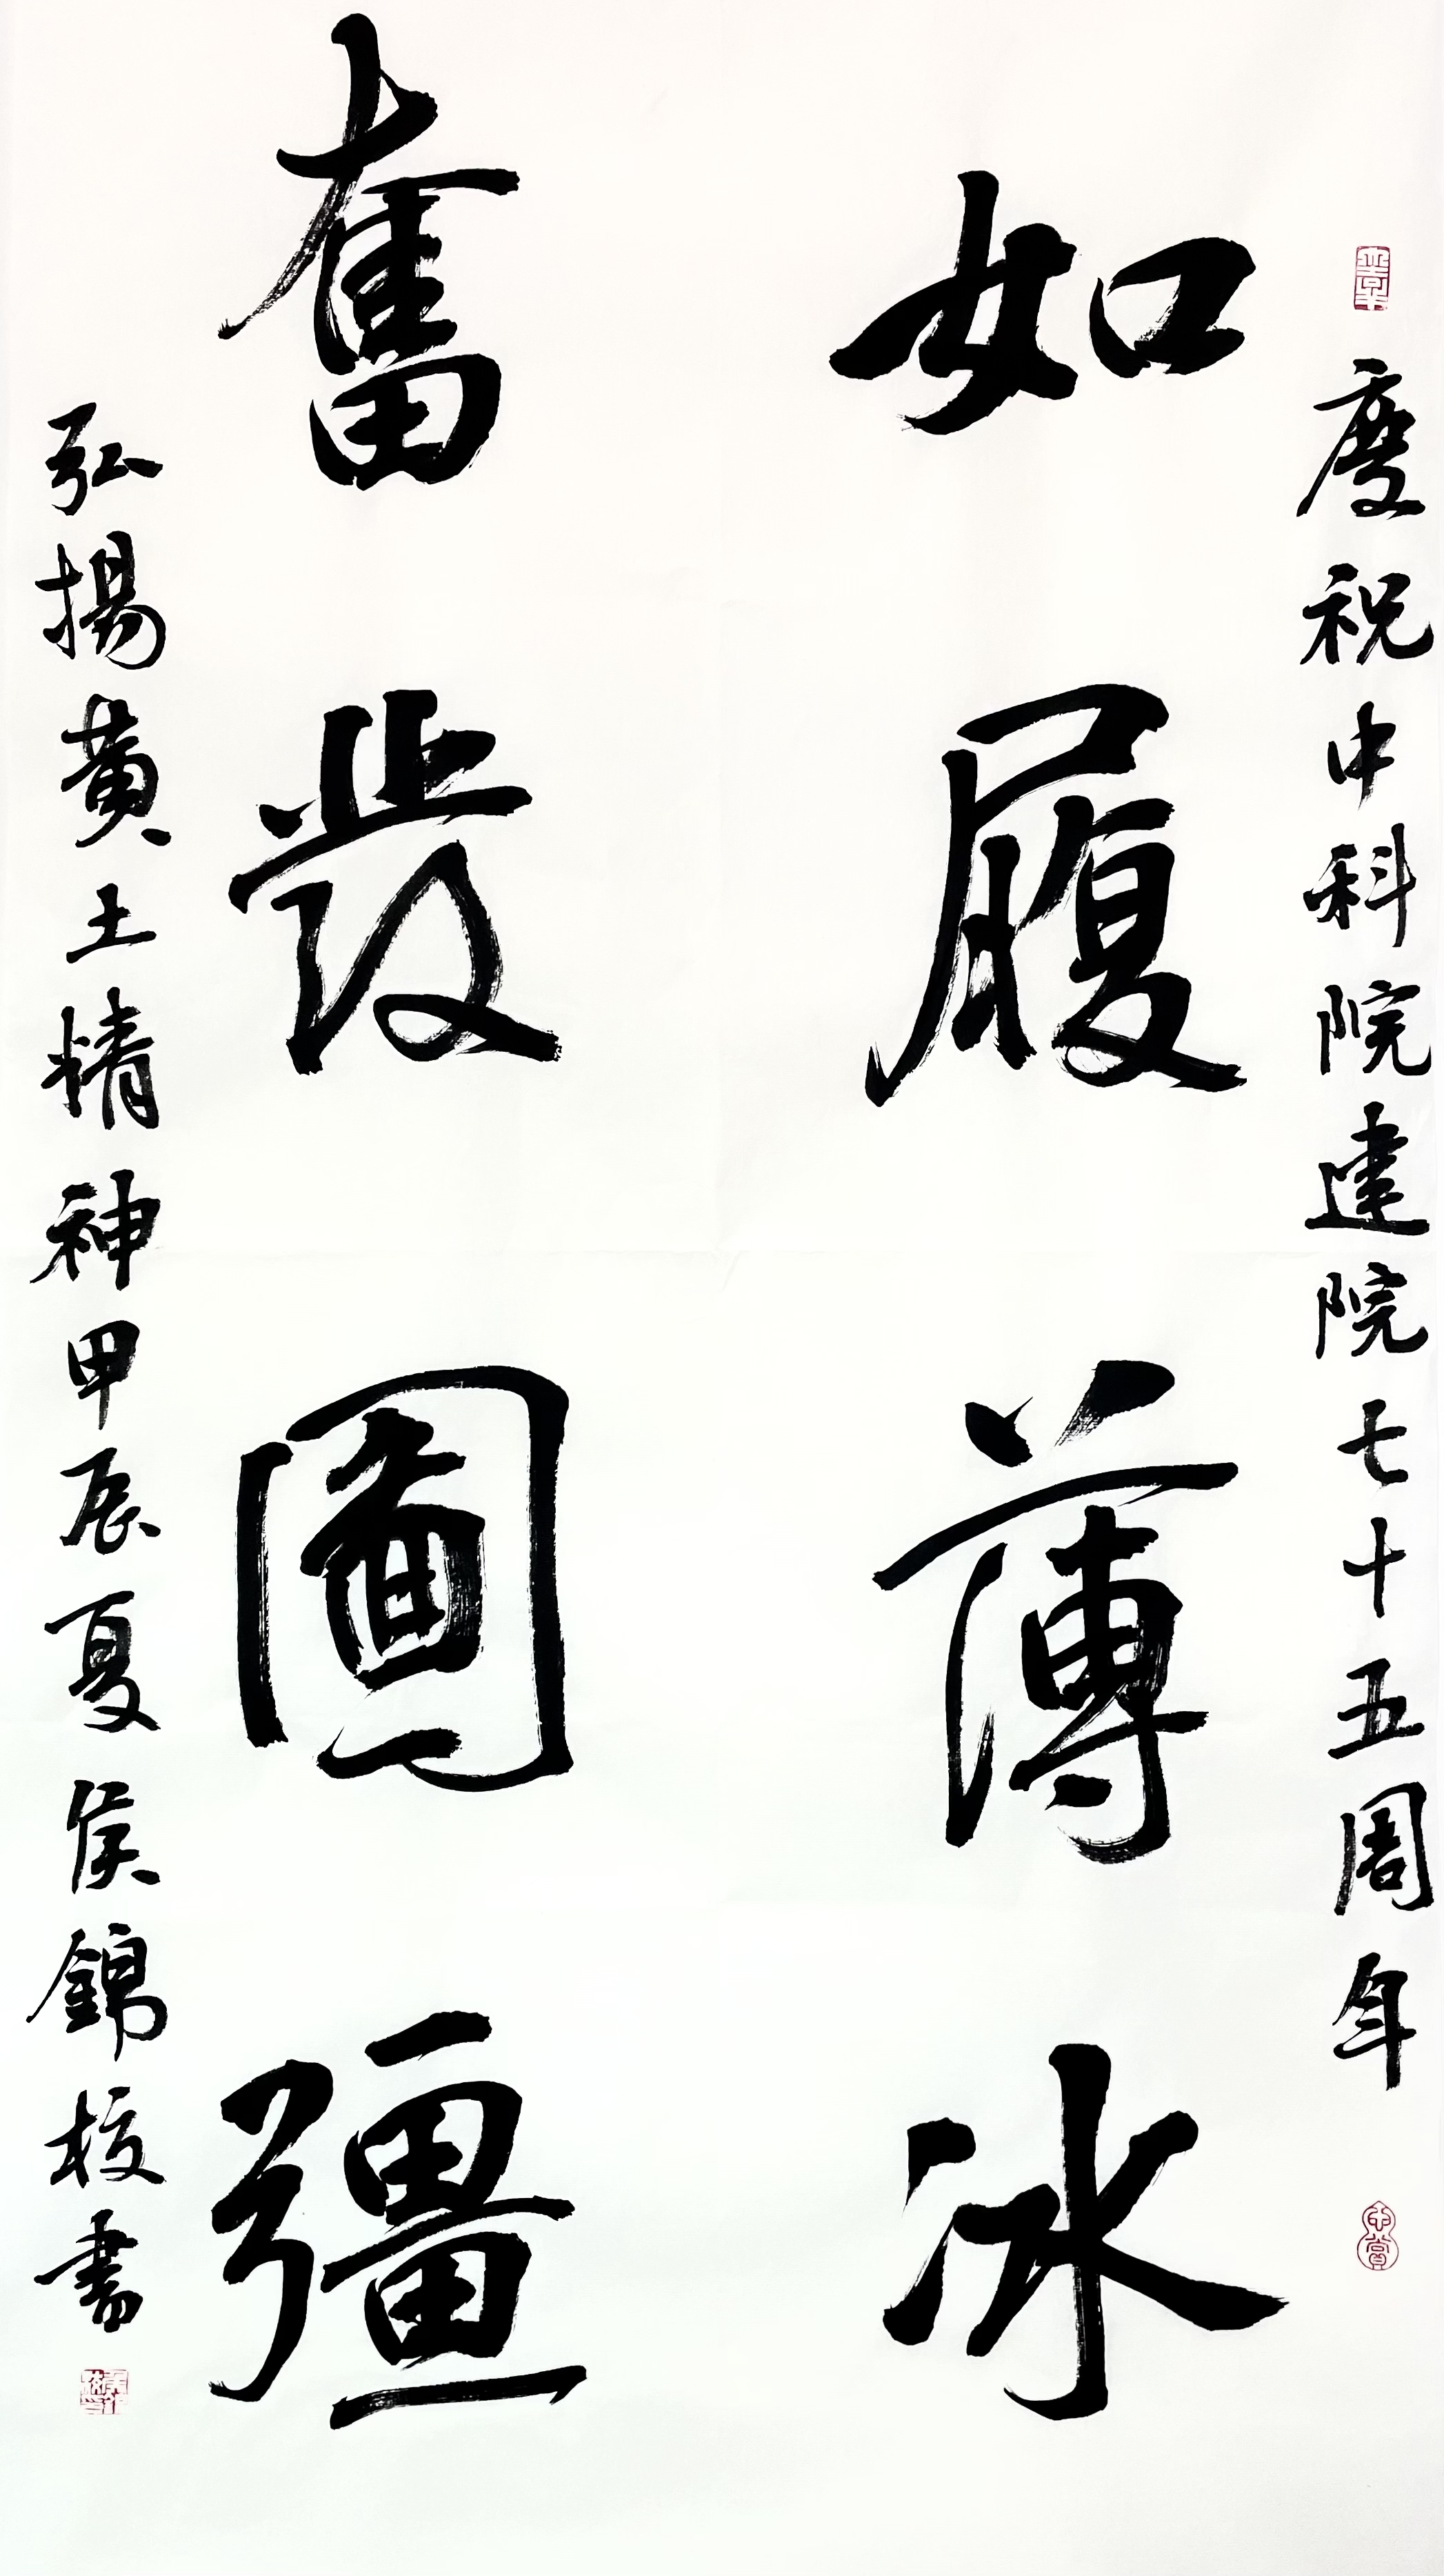 慶祝中科院建院七十五周年
如履薄冰
奮發圖彊
弘揚黃土精神甲辰夏侯錦校書